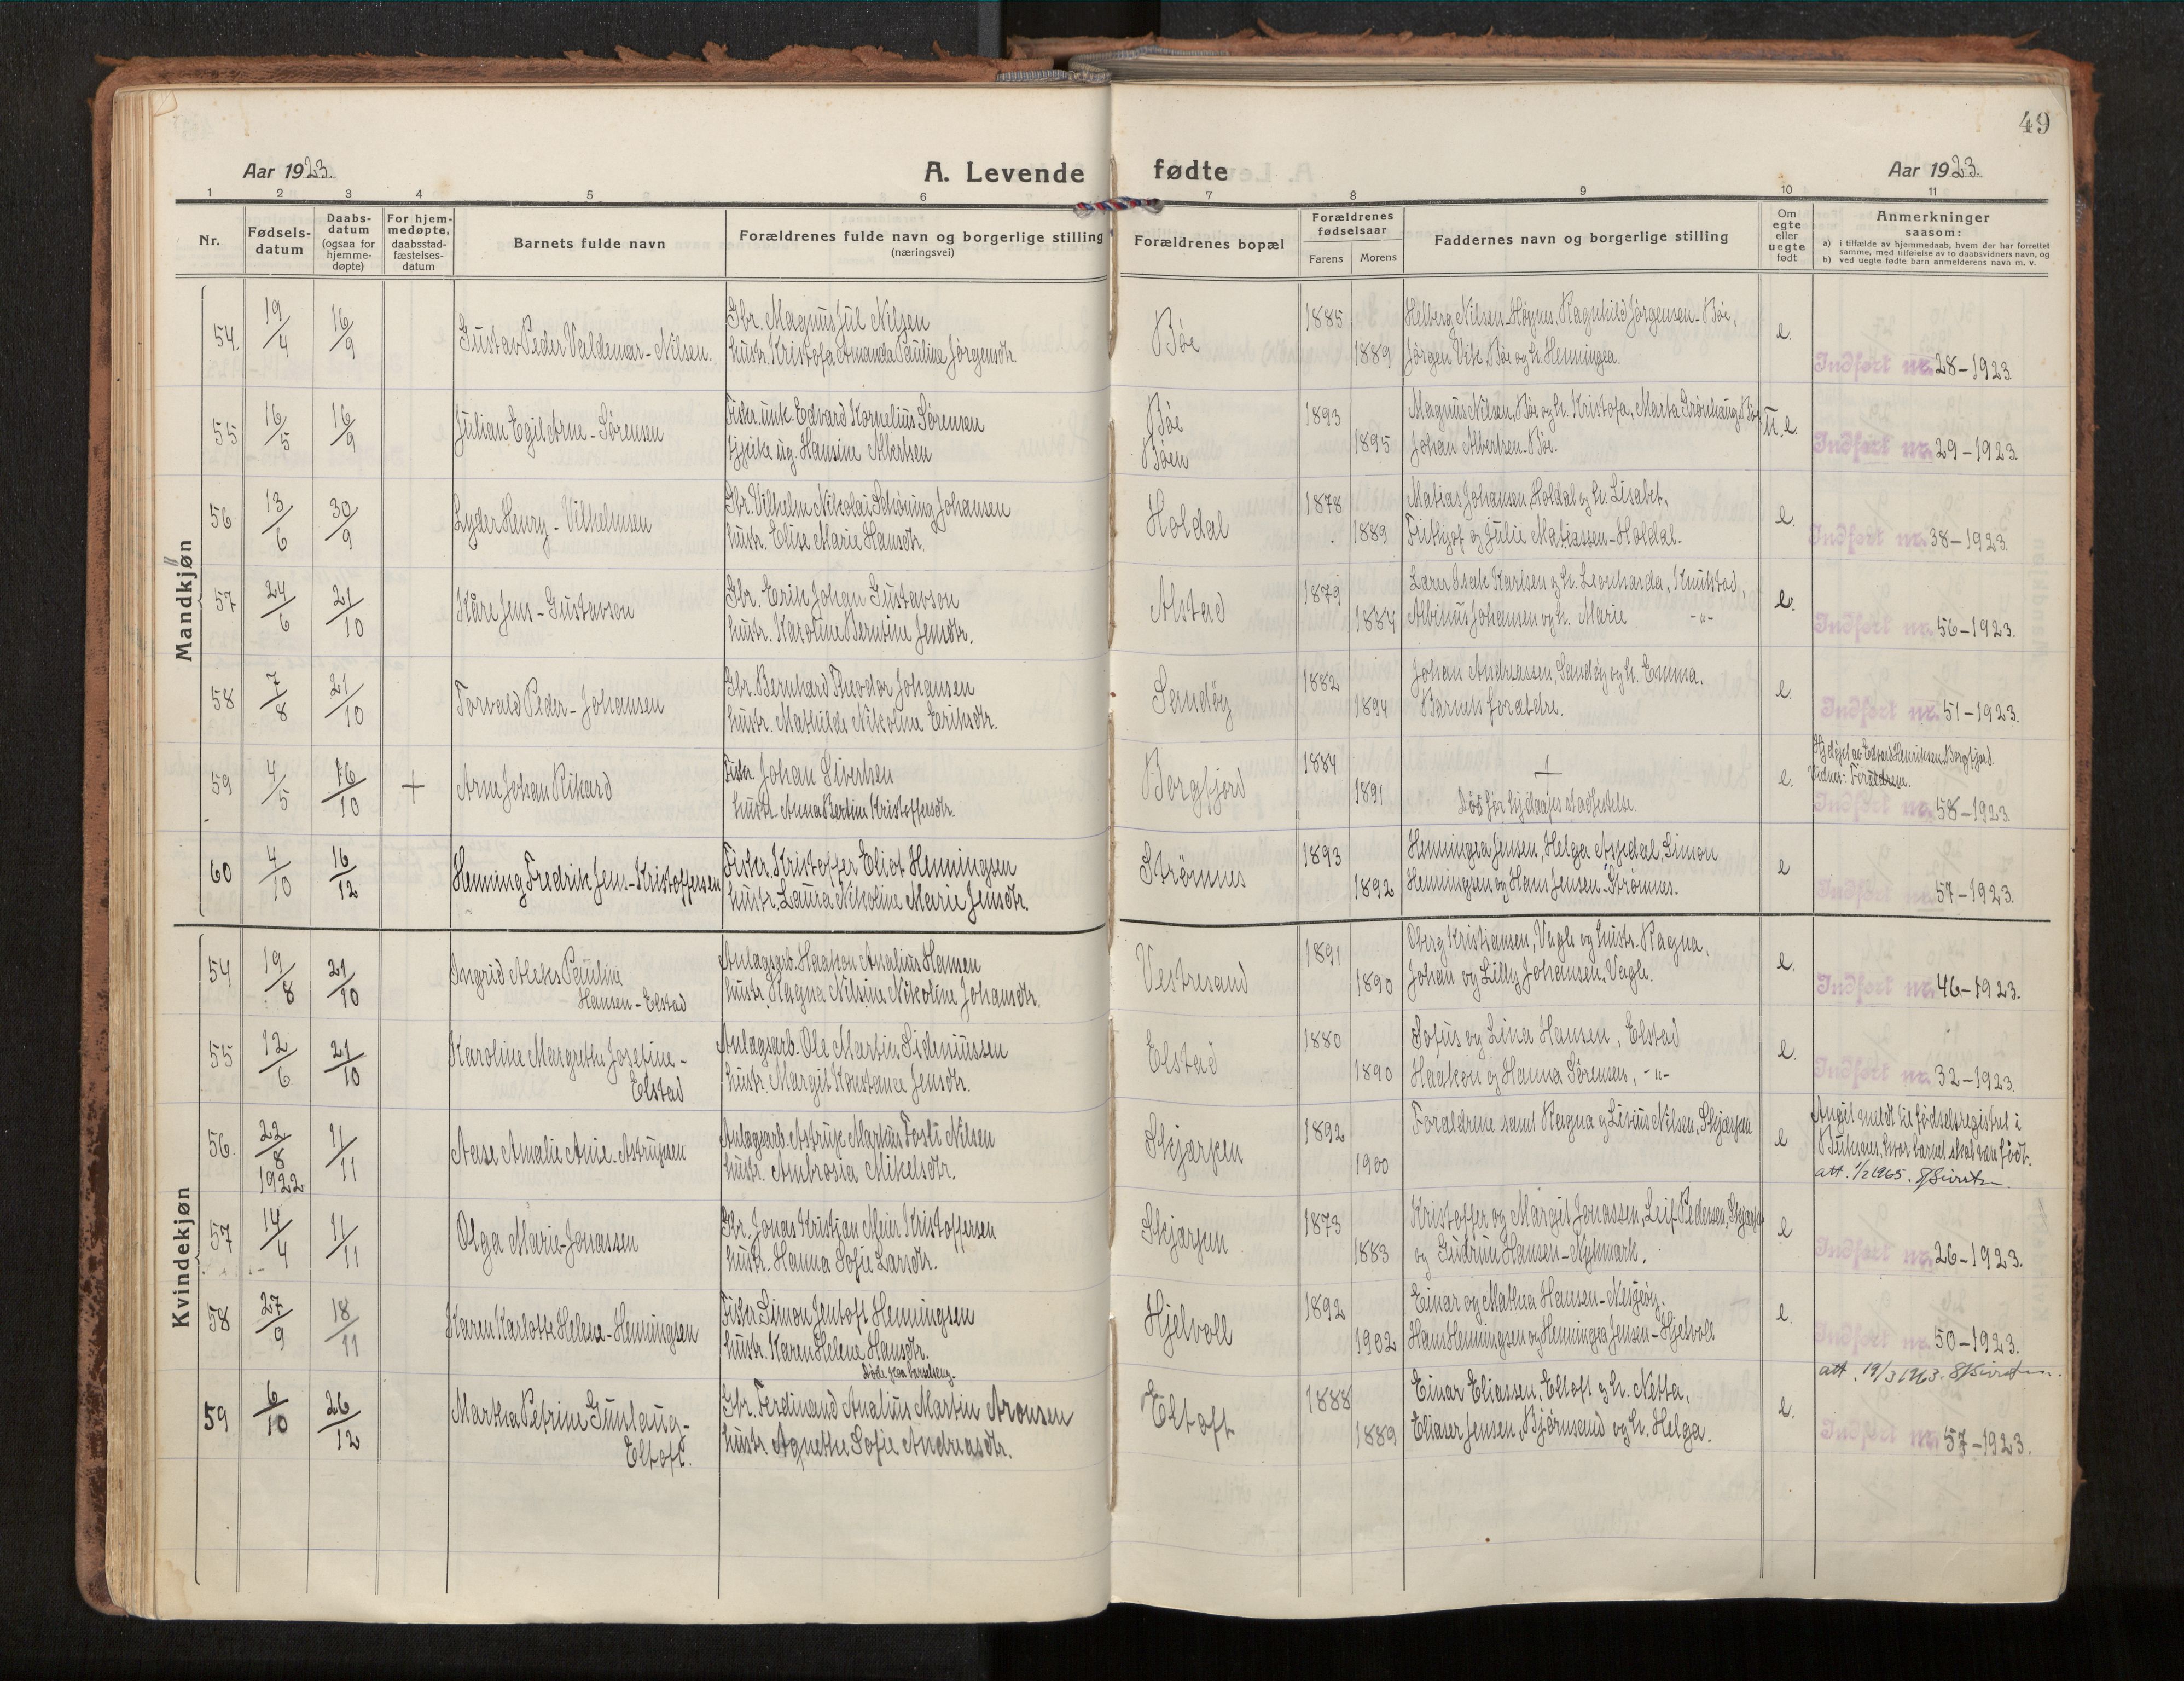 49
Aar 1923.
A. Levende fødte
Aar 1923.
1 2 3 4 5 6 7 8 9 10 11
Nr.
Fødsels-
datum
Daabs-
datum
(ogsaa for
hjemme-
døpte)
For hjem-
medøpte,
daabsstad-
fæstelses-
datum
Barnets fulde navn
Forældrenes fulde navn og borgerlige stilling
(næringsvei)
Forældrenes bopæl
Forældrenes
fødselsaar
Farens
Morens
Faddernes navn og borgerlige stilling
Om
egte
eller
uegte
født
Anmerkninger
saasom:
a) i tilfælde av hjemmedaab, hvem der har forrettet
samme, med tilføielse av to daabsvidners navn, og
b) ved uegte fødte barn anmelderens navn m. v.
Mandkjøn
54. 19/4 16/9 Gustav Peder Valdemar - Nilsen.
Gbr. Magnus Jul Nilsen
hustr. Kristofa Amanda Pauline Jørgensdtr.
Bøe 1885 1889
Helberg Nilsen - Høgnes, Ragnhild Jørgensen - Bøe,
Jørgen Vik, Bøe og h. Henningea.
e.
Indført nr. 28-1923.
55 16/5 16/9 Julian Egil Arne - Sørensen
Fisker. unk. Edvard Kornelius Sørensen
pike ug. Hansine Albertsen
Bøe
Bøen
1893 1895
Magnus Nilsen, Bøe og h. Kristofa, Marta Grønhaug, Bøe
Johan Albertsen - Bøe.
u.e.
Indført nr. 29-1923.
56 13/6 30/9 Lyder Henry - Vilhelmsen
Gbr. Vilhelm Nikolai Schøning Johansen
hustr. Elise Marie Hansdtr.
Holdal 1878 1889
Matias Johansen, Holdal og h. Lisabet,
Frithjof og Julie Matiassen - Holdal.
e.
Indført nr. 38-1923.
57 24/6 21/10 Kåre Jens - Gustavson
Gbr. Erik Johan Gustavson
hustr. Karoline Berntine Jensdtr.
Alstad 1879 1884
Lærer Isak Karlsen og h. Leonharda, Knutstad,
Albinus Johansen og h. Marie -"-
e.
Indført nr. 56-1923.
58 7/8 21/10 Torvald Peder - Johansen
Gbr. Bernhard Teodor Johansen
hustr. Mathilde Nikoline Eriksdtr.
Sandøy 1882 1894
Johan Andreassen, Sandøy og h. Emma.
Barnets forældre.
e.
Indført nr. 51-1923.
59 4/5 16/10 + Arne Johan Rikard
Fisker Johan Sivertsen
hustr. Anna Bertine Kristoffersdtr.
Borgfjord 1884 1891
†
Død før hj.daapes stadfestelse.
e.
Hj.døpt av Edvard Henriksen, Borgfjord
Vidner: Forældrene.
Indført nr. 58-1923
60 4/10 16/12 Henning Fredrik Jens - Kristoffersen
Fisker. Kristoffer Eliot Henningsen
hustr. Laura Nikoline Marie Jensdtr.
Strømnes 1893 1892
Henningea Jensen, Helga Aspedal, Simon
Henningsen og Hans Jensen - Strømnes.
e
Indført nr. 57-1923.
Kvindekjøn
54 19/8 21/10 Ingrid Aleks Pauline
Hansen - Elstad
Anlægsarb. Haakon Analius Hansen
hustr. Magna Nilsine Nikoline Johansdtr.
Vestresand 1891 1890
Oberg Kristiansen, Vagle og hustr. Ragna,
Johan og Lilly Johansen, Vagle.
e.
Indført nr. 46-1923.
55 12/6 21/10 Karoline Margrethe Josefine -
Elstad
Anlægsarb. Ole Martin Sideniussen
hustr. Margit Konstance Jensdtr.
Elstad 1880 1890
Sofus og Lina Hansen, Elstad
Haakon og Hanna Sørensen, -"-
e.
Indført nr. 32-1923.
56. 22/8 1922 11/11 Aase Amalie Anie - Astrupsen
Anlægsarb. Astrup Markus Tosti Nilsen
hustr. Ambrosia Mikelsdtr.
Skjærpen 1892 1900
Forældrene samt Ragna og Livius Nilsen, Skjærpen
e
Angit meldt til fødselsregistret i
Buksnes, hvor barnet skal være født.
att. 1/2 1965.
57 14/4 11/11 Olga Marie - Jonassen
Gbr. Jonas Kristian Meier Kristoffersen
hustr. Hanna Sofie Larsdtr.
Skjærpen 1873 1883
Kristoffer og Margit Jonassen, Leif Pedersen, Skjærpen
og Gudrun Hansen - Nykmark.
e
Indført nr. 26-1923.
58 27/9 18/11 Karen Karlotte Helene - Henningsen
Fisker Simon Jentoft Henningsen
hustr. Karen Helene Hansdtr.
Døde paa barselseng.
Hjelvoll 1892 1902
Einar og Mathea Hansen -
Hans Henningsen og Henningea Jensen - Hjelvoll
e.
Indført nr. 50-1923.
att. 19/3 1963.
59 6/10 26/12 Martha Petrine Gunslaug -
Eltoft.
Gbr. Ferdinand Analius Martin Aronsen
hustr. Agnethe Sofie Andreasdtr.
Eltoft 1888 1889
Einar Eliassen, Eltoft og h. Netta,
Eliaser Jensen, Bjørnsand og h. Helga.
e.
Indført nr. 57-1923.